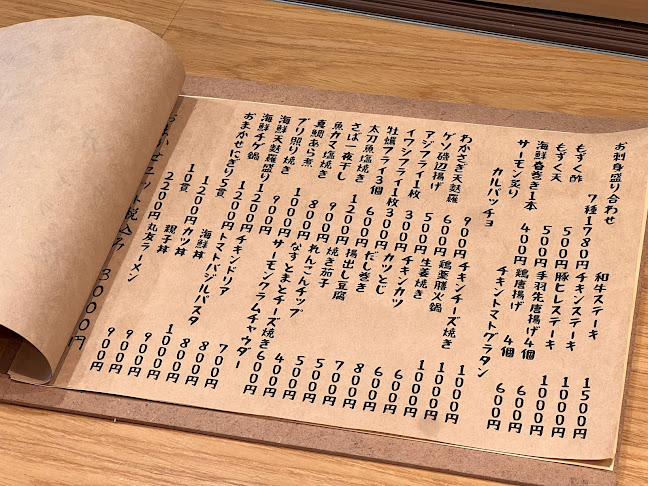 お刺身盛り合わせ
7種1780円 和牛ステーキ 1500円
もずく酢 500円 チキンステーキ 1000円
もずく天 500円 豚ヒレステーキ 1000円
海鮮春巻き1本 400円 手羽先唐揚げ4個 600円
サーモン炙り 鶏唐揚げ 4個 600円
カルパッチョ チキントマトグラタン
わかさぎ天麩羅 900円 チキンチーズ焼き 1000円
ゲソ磯辺揚げ 600円 鶏薬膳火鍋 1000円
アジフライ1枚 500円 生姜焼き 1000円
イワシフライ1枚 300円 チキンカツ 600円
牡蠣フライ3個 900円 カツとじ 600円
太刀魚塩焼き 600円 だし巻き 600円
さば一夜干し 1200円 揚出し豆腐 800円
魚カマ塩焼き 800円 焼き茄子 700円
真鯛あら煮 900円 れんこんチップ 500円
ブリ照り焼き 1000円 なすとまとチーズ焼き 400円
海鮮天麩羅盛り 1200円 サーモンクラムチャウダー 600円
海鮮チゲ鍋 1200円 チキンドリア 700円
おまかせにぎり5貫 トマトバジルパスタ 800円
1200円 海鮮丼 800円
10貫 カツ丼 1000円
2200円 親子丼 900円
丸友ラーメン 900円
税込み 3000円